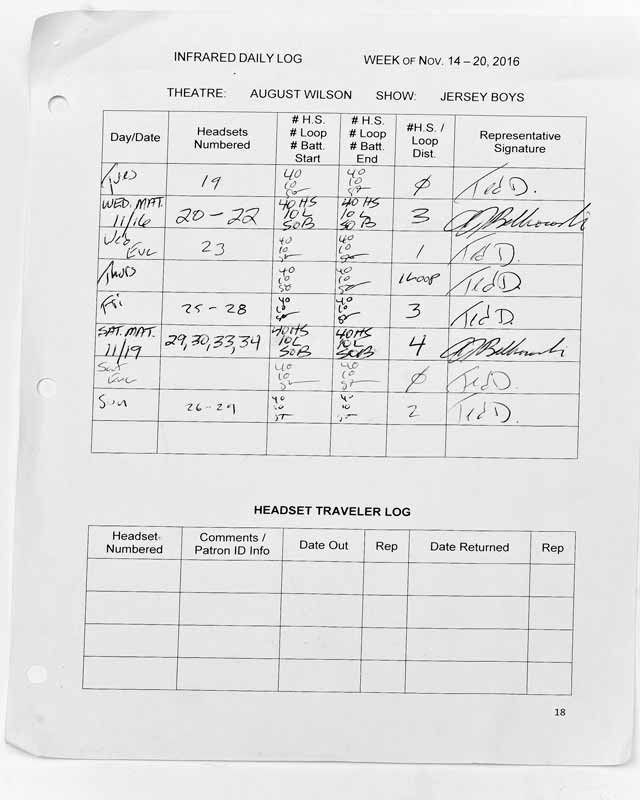 INFRARED DAILY LOG WEEK OF NOV. 14 – 20, 2016
THEATRE: AUGUST WILSON SHOW: JERSEY BOYS
Day/Date Headsets Numbered # H.S. # Loop # Batt. Start # H.S. # Loop # Batt. End #H.S. / Loop Dist. Representative Signature
Tues 19 40 10 40 10 Ø Ted D.
WED. MAT. 11/16 20 – 22 40 HS 10 L 50 B 40 HS 10 L 50 B 3
Wed Eve 23 40 10 40 10 1 Ted D.
Thurs 40 10 40 10 1 Loop Ted D.
Fri 25 - 28 40 10 40 10 3 Ted D.
SAT. MAT. 11/19 29, 30, 33, 34 40 HS 10 L 50 B 40 HS 10 L 50 B 4
Sat Eve 40 10 40 10 Ø Ted D.
Sun 26 - 29 40 10 40 10 2 Ted D.
HEADSET TRAVELER LOG
Headset Numbered Comments / Patron ID Info Date Out Rep Date Returned Rep
18